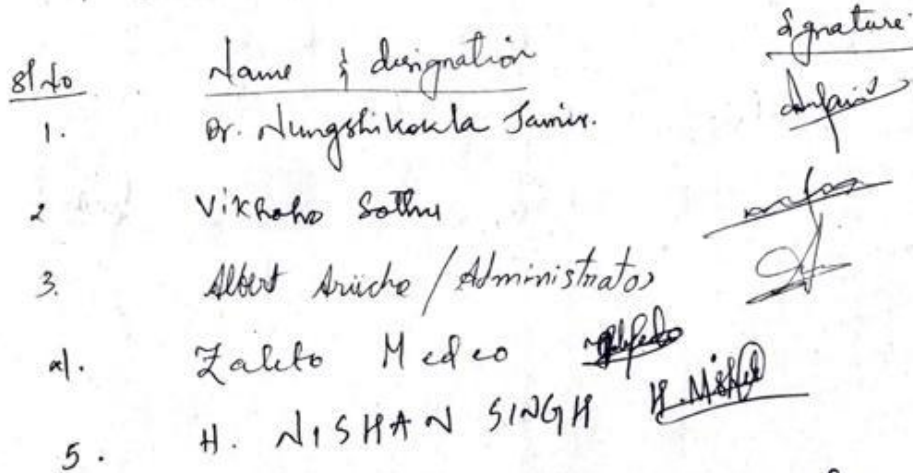 Sl No Name & designation Signature
1. Dr. Nungshikokla Jamir.
2 Vikhoho Sothu
3. Albert Ariicho / Administrator
4. Zaleto Medeo
5. H. NISHAN SINGH H. Nishan